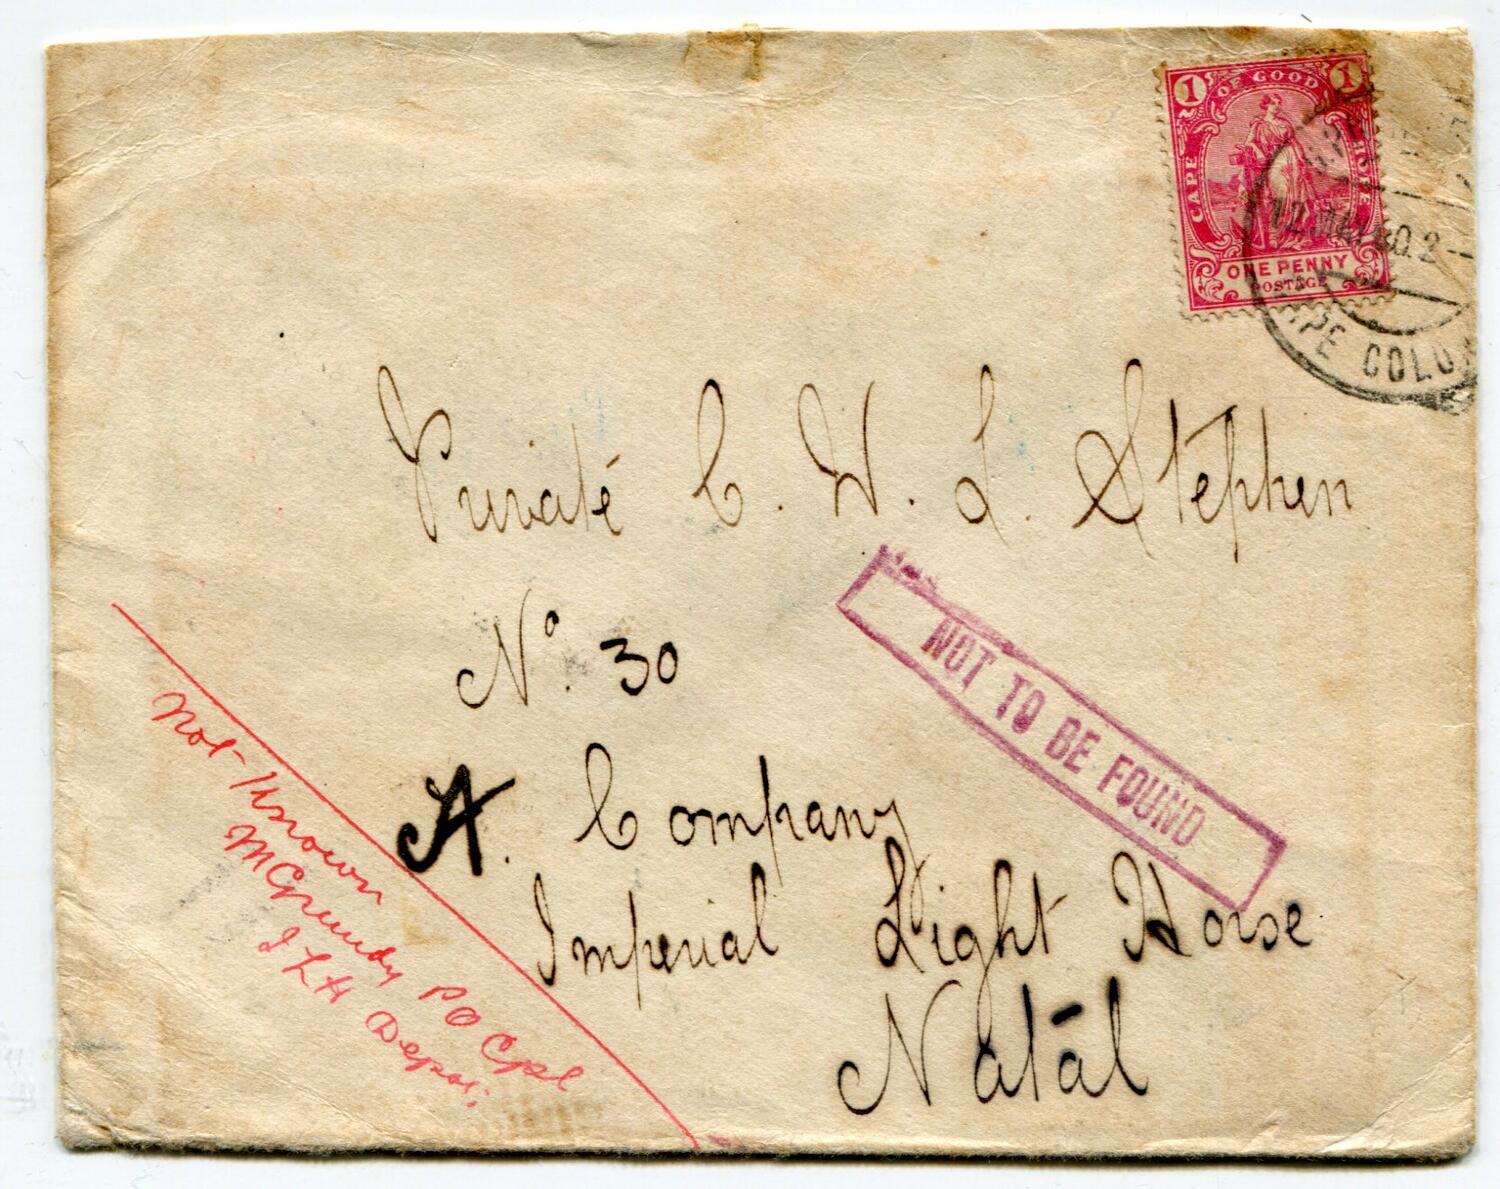 1 OF GOOD 1
CAPE
ONE PENNY
POSTAGE
CAPE COLO
Privaté C. W. L. Stephen
Nº. 30
A. Company
Imperial Light Horse
Natāl
NOT TO BE FOUND
Not-Known
McGrundy PO Cpl
ILH Depot